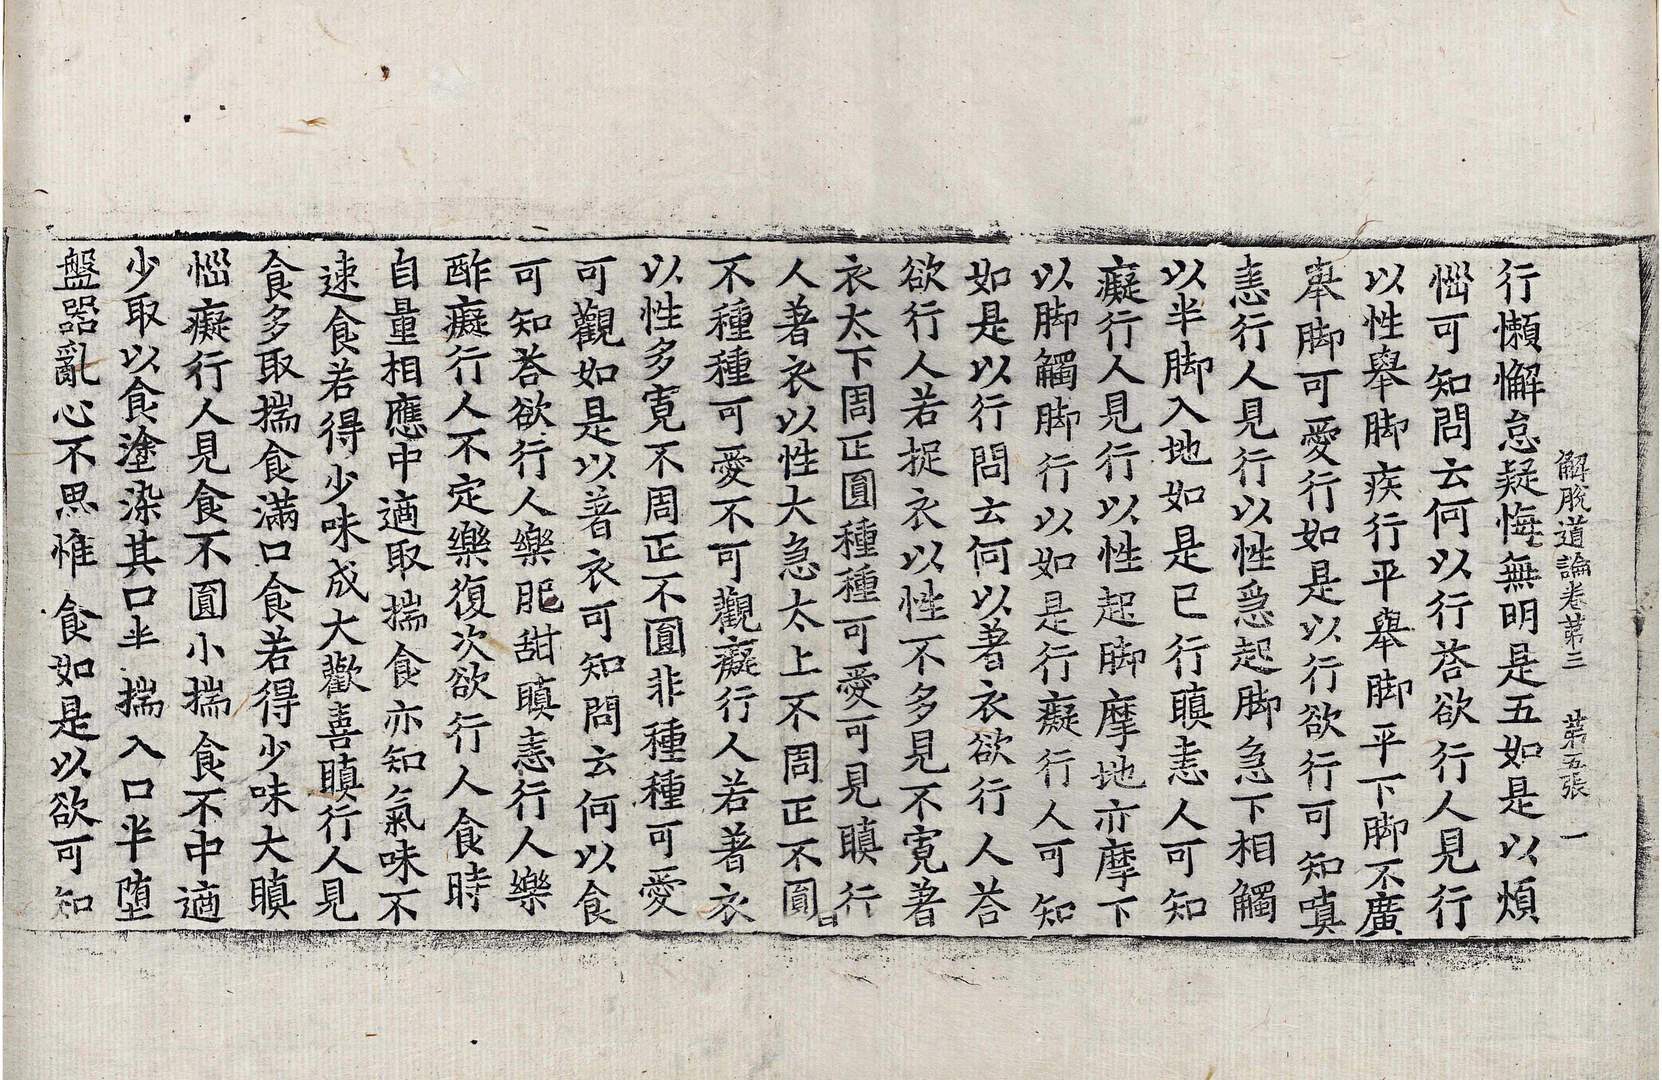 解脫道論卷第三　第五張　一
行懶懈怠疑悔無明是五如是以煩
惱可知問云何以行荅欲行人見行
以性舉脚疾行平舉脚平下脚不廣
舉脚可愛行如是以行欲行可知嗔
恚行人見行以性急起脚急下相觸
以半脚入地如是已行瞋恚人可知
癡行人見行以性起脚摩地亦摩下
以脚觸脚行以如是行癡行人可知
如是以行問云何以著衣欲行人荅
欲行人若捉衣以性不多見不寬著
衣太下周正圎種種可愛可見瞋行
人著衣以性大急太上不周正不圎
不種種可愛不可觀癡行人若著衣
以性多寬不周正不圎非種種可愛
可觀如是以著衣可知問云何以食
可知荅欲行人樂肥甜瞋恚行人樂
酢癡行人不定樂復次欲行人食時
自量相應中適取揣食亦知氣味不
速食若得少味成大歡喜瞋行人見
食多取揣食滿口食若得少味大瞋
惱癡行人見食不圎小揣食不中適
少取以食塗染其口半揣入口半墮
盤器亂心不思惟食如是以欲可知